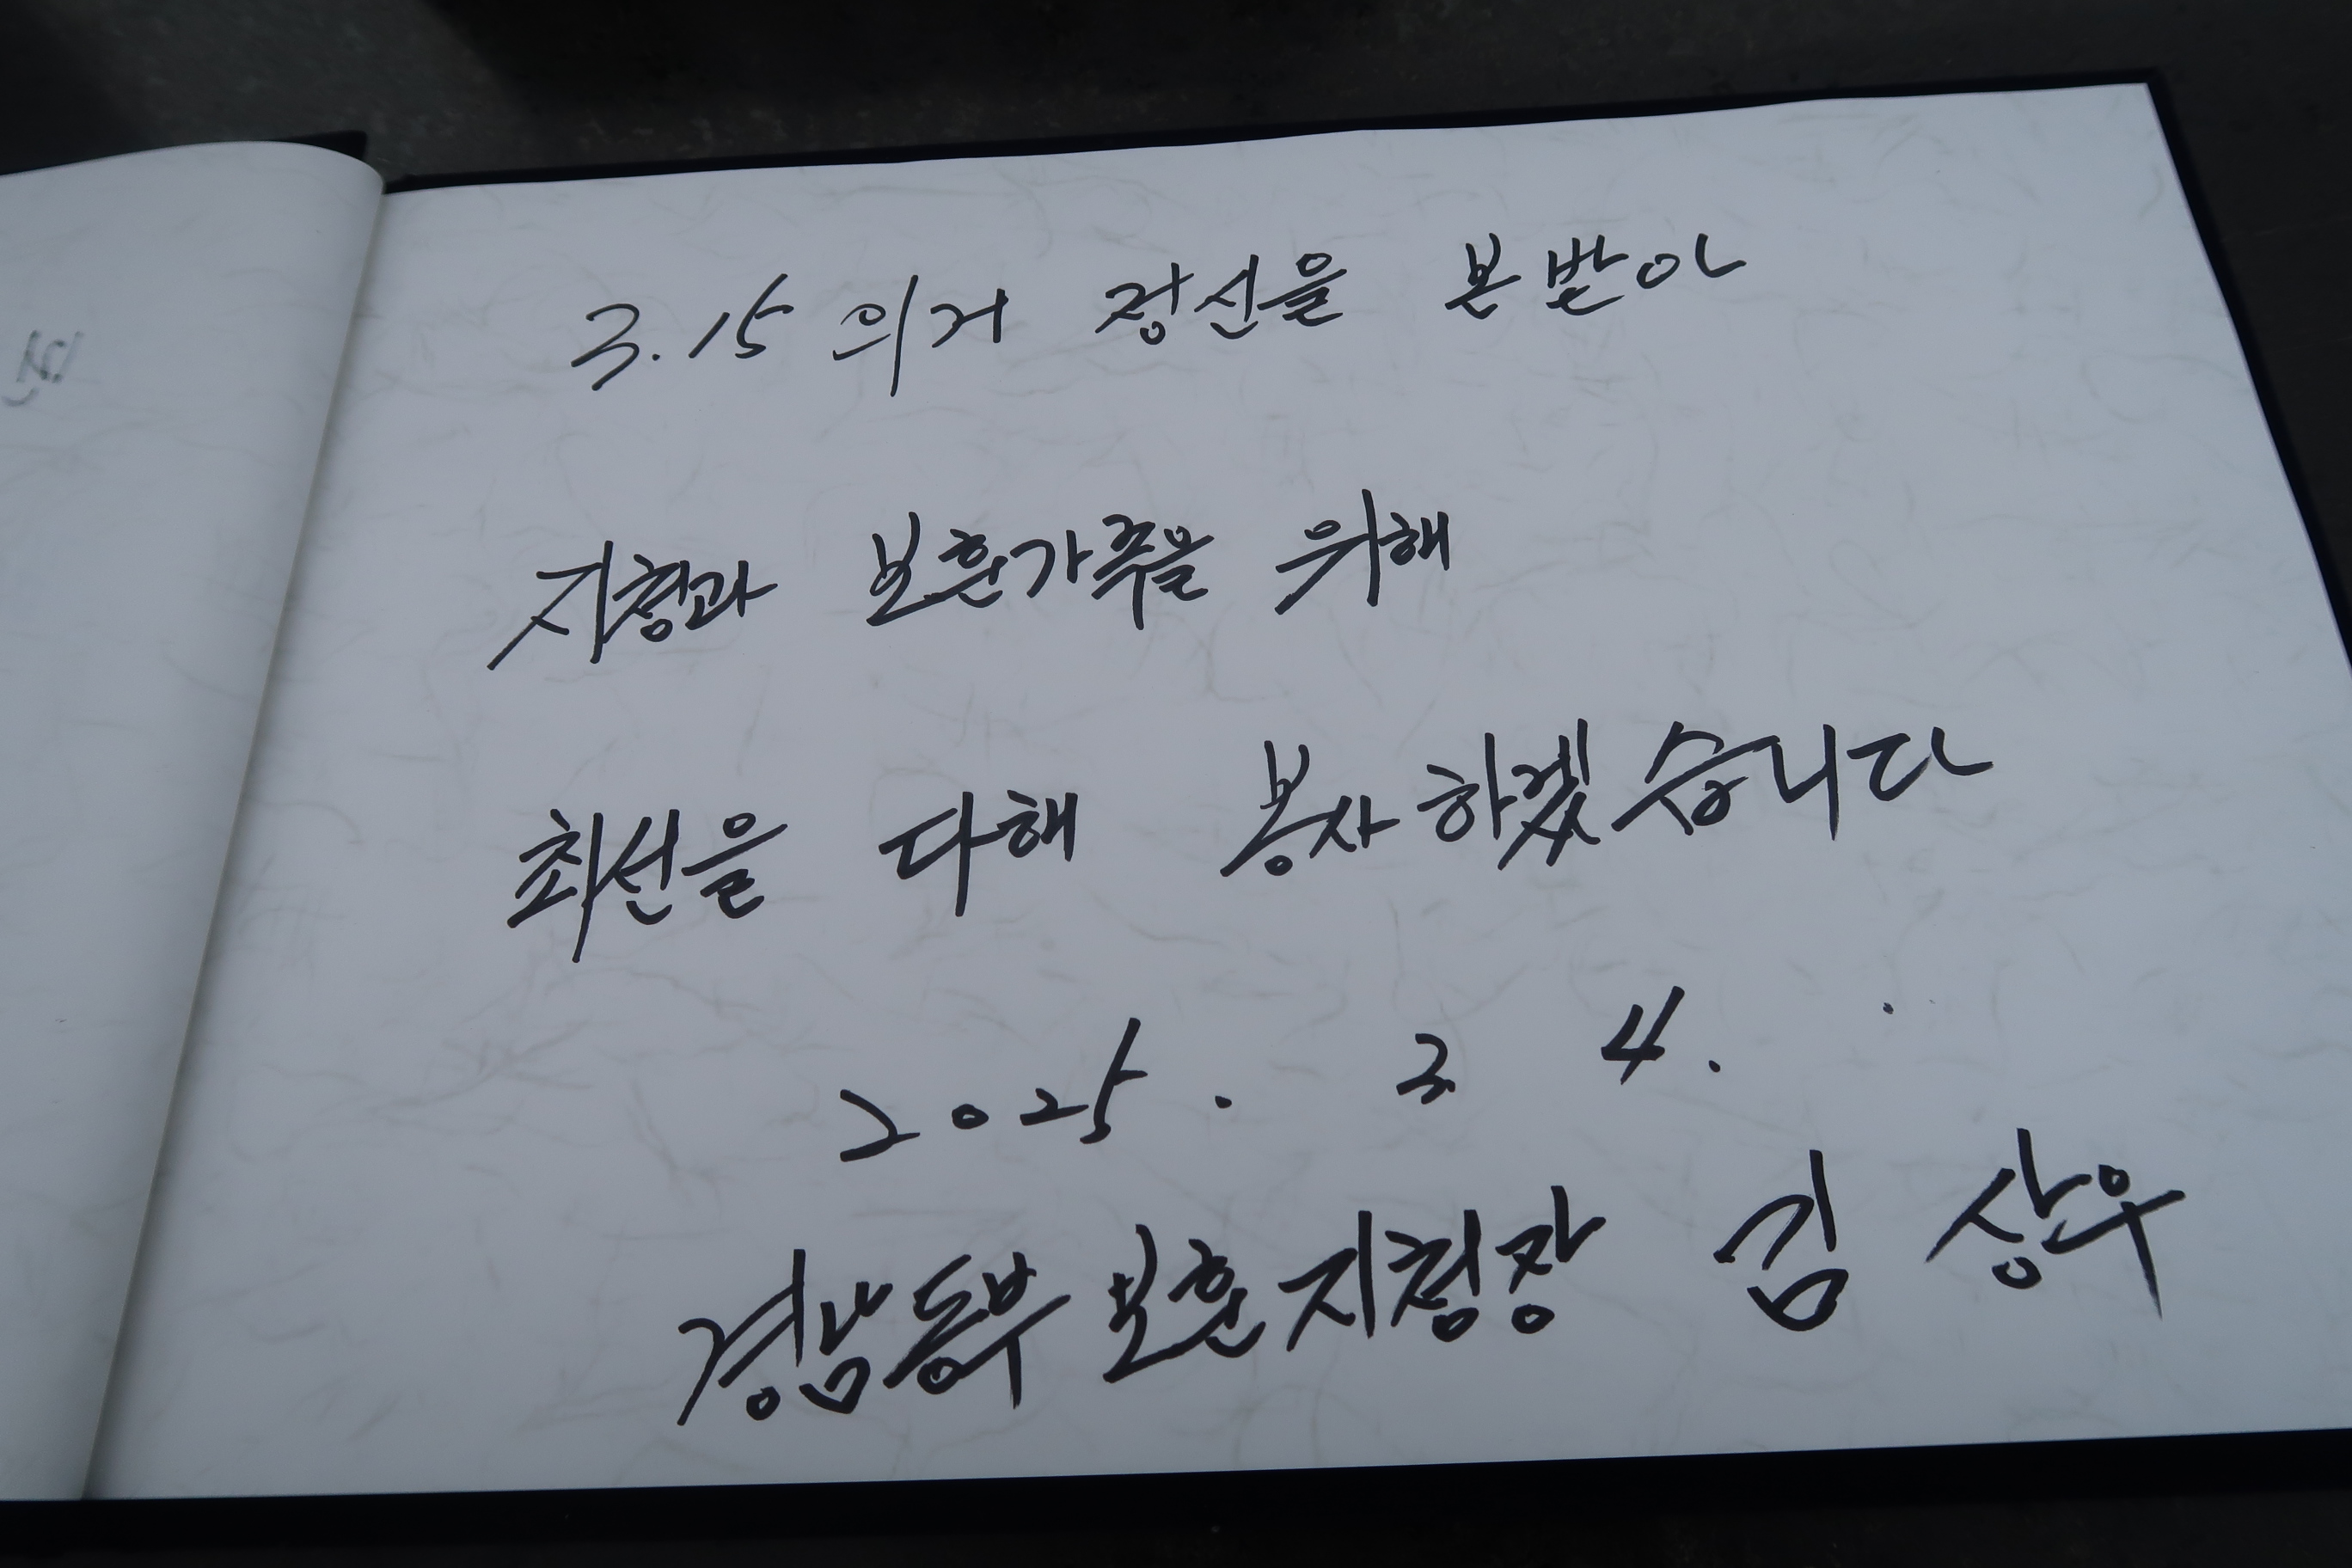 3.15 의거 정신을 본받아
지청과 보훈가족을 위해
최선을 다해 봉사하겠습니다
2025. 3. 4.
경남동부보훈지청장 김상우